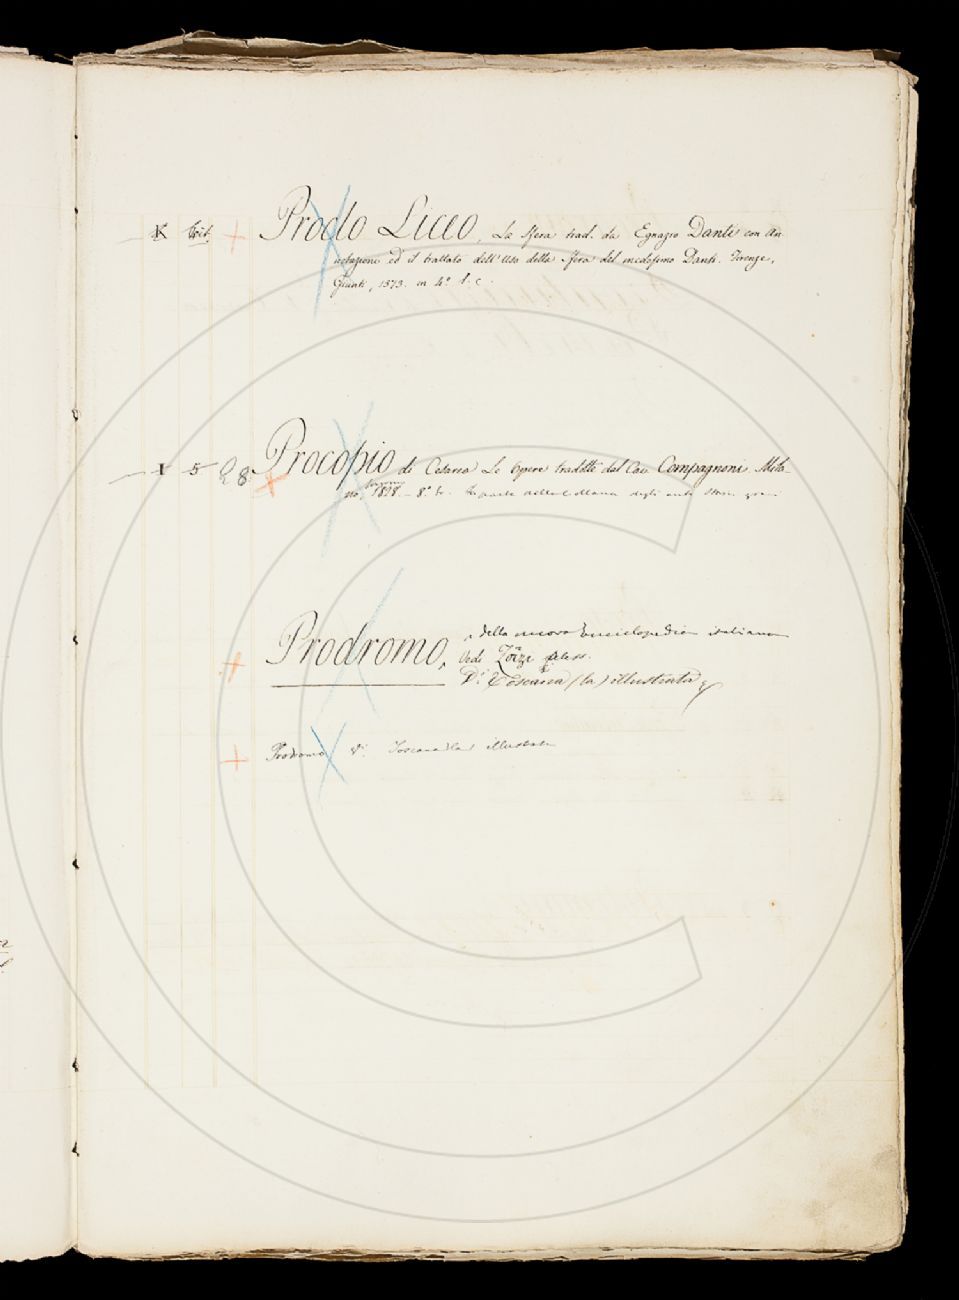 K Crit. + Proclo Liceo, La Sfera trad. da Egnazio Dante con An
notazioni ed il trattato dell'Uso della Sfera del medesimo Danti. Firenze,
Giunti, 1573. in 4.º
I 5 28 + Procopio di Cesarea Le Opere tradotte dal Cav. Compagnoni. Mila-
no, 1828. 8.º fa parte della Collana degli antichi
+ Prodromo, della nuova Enciclopedia italiana
Vedi Zorzi Aless.
V.i Toscana (la) illustrata
+ Prodromo V.i Toscana la illustrata